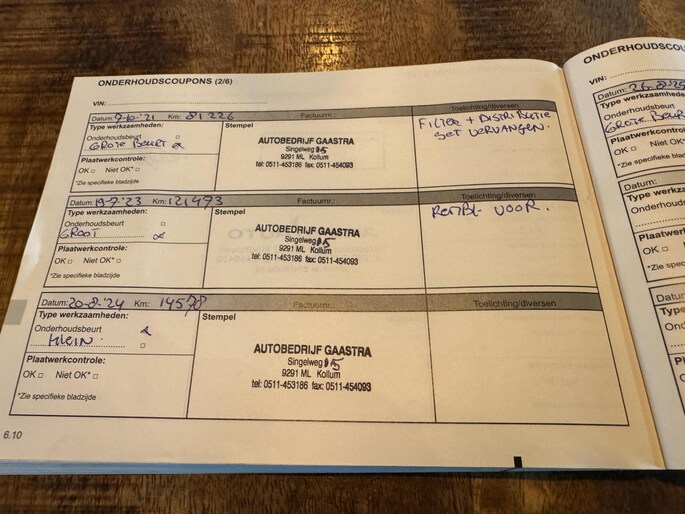 ONDERHOUDSCOUPONS (2/6)
VIN:
Datum: 7-10-'21 Km: 81226 Factuurnr.: Toelichting/diversen
Type werkzaamheden:
Onderhoudsbeurt
GROTE BEURT
Plaatwerkcontrole:
OK Niet OK*
*Zie specifieke bladzijde
Stempel
AUTOBEDRIJF GAASTRA
Singelweg 15
9291 ML Kollum
tel: 0511-453186 fax: 0511-454093
FILTER + DISTRIBUTIE
SET VERVANGEN.
Datum: 19-7-'23 Km: 121473 Factuurnr.: Toelichting/diversen
Type werkzaamheden:
Onderhoudsbeurt
GROOT
Plaatwerkcontrole:
OK Niet OK*
*Zie specifieke bladzijde
Stempel
AUTOBEDRIJF GAASTRA
Singelweg 15
9291 ML Kollum
tel: 0511-453186 fax: 0511-454093
VOOR.
Datum: 20-8-'24 Km: Factuurnr.: Toelichting/diversen
Type werkzaamheden:
Onderhoudsbeurt
KLEIN
Plaatwerkcontrole:
OK Niet OK*
*Zie specifieke bladzijde
Stempel
AUTOBEDRIJF GAASTRA
Singelweg 15
9291 ML Kollum
tel: 0511-453186 fax: 0511-454093
6.10
ONDERHOUDSCOU
VIN:
Datum:
Type werkzaamh
Onderhoudsbeurt
GROTE BEUR
Plaatwerkcontr
OK Niet OK
*Zie specifieke bla
Datum:
Type werk
Onderhouds
Plaatwerk
OK
*Zie spec
Datu
Type
Onde
Pl
OK
*Zi